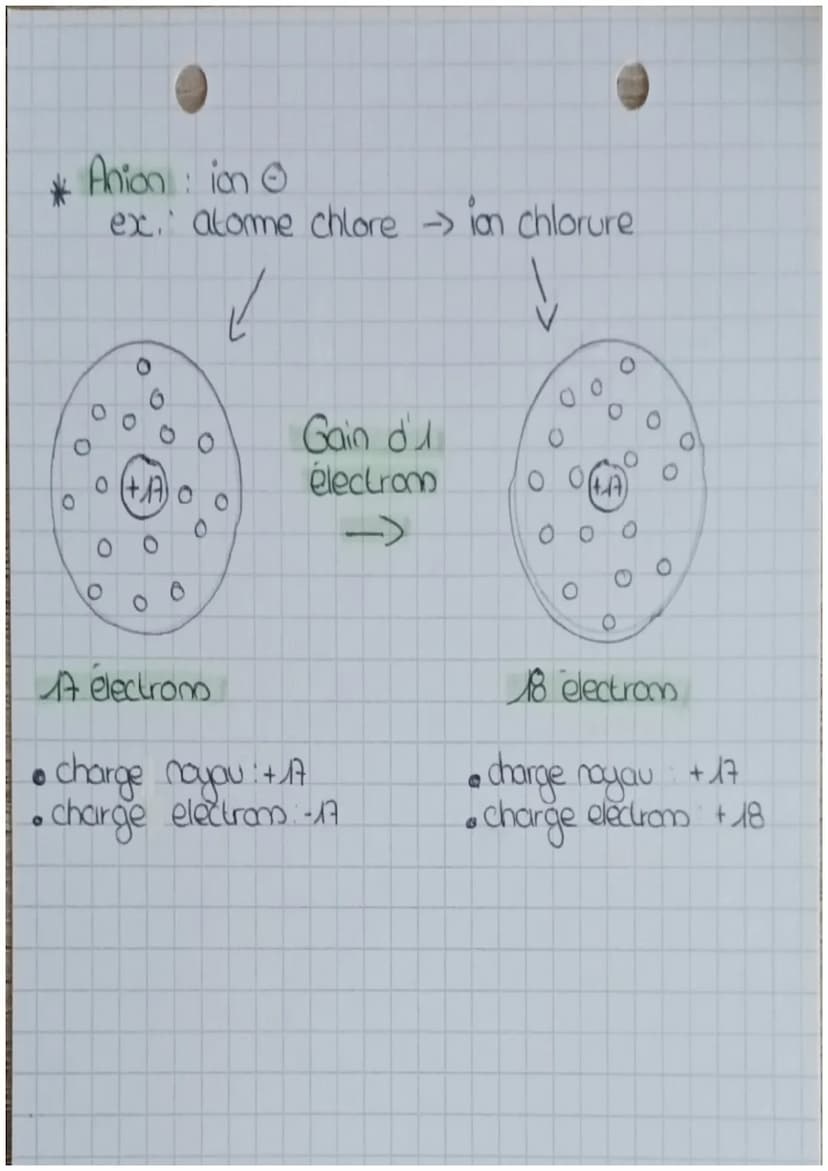 * Anion : ion ⊖
ex.: atome chlore → ion chlorure
Gain d'1
électron
→
+17
+17
17 électrons
18 électrons
• charge noyau : +17
• charge électrons : -17
• charge noyau : +17
• charge électrons + 18